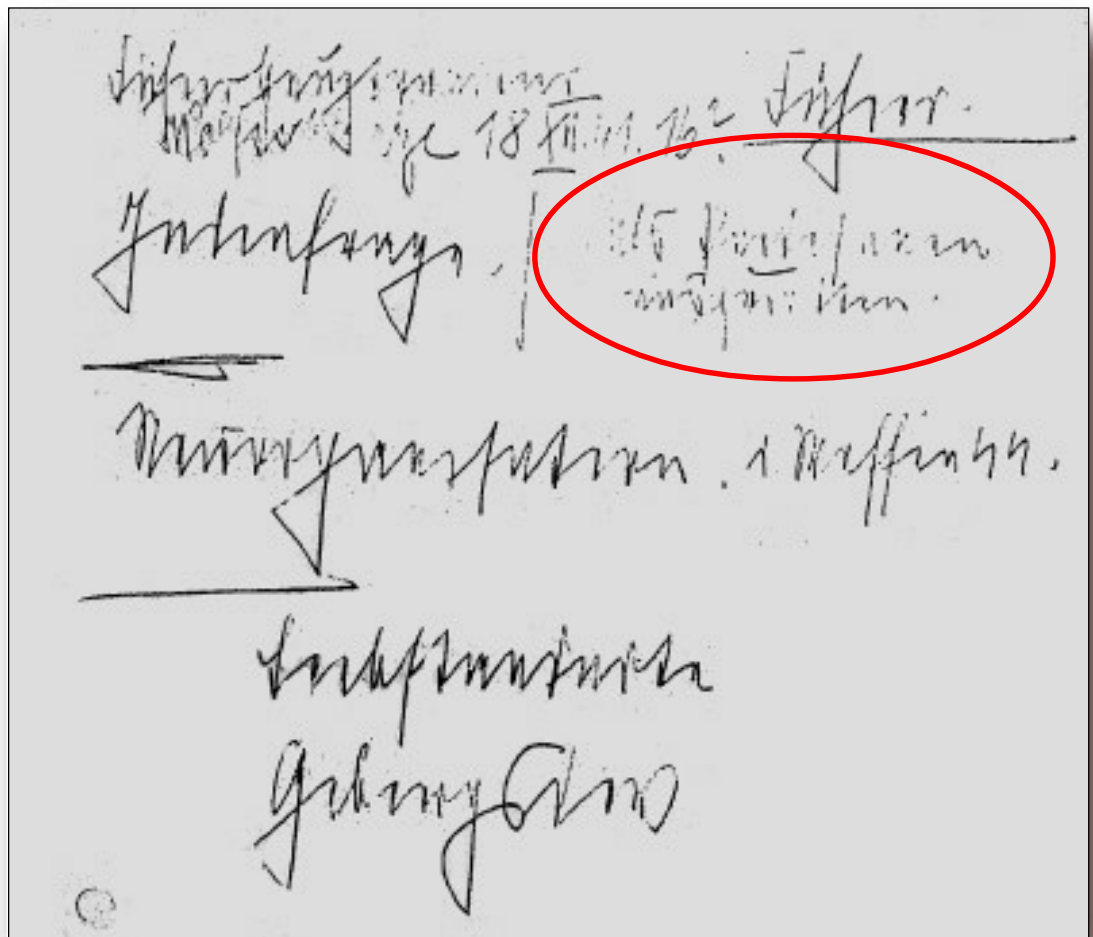 Führerhauptquartier
Wolfsschanze 18 XII. 41. 16h Führer.
Judenfrage. | als Partisanen
auszurotten.
Neuorganisation. d Waffen SS.
Leibstandarte
Gebirgsdiv